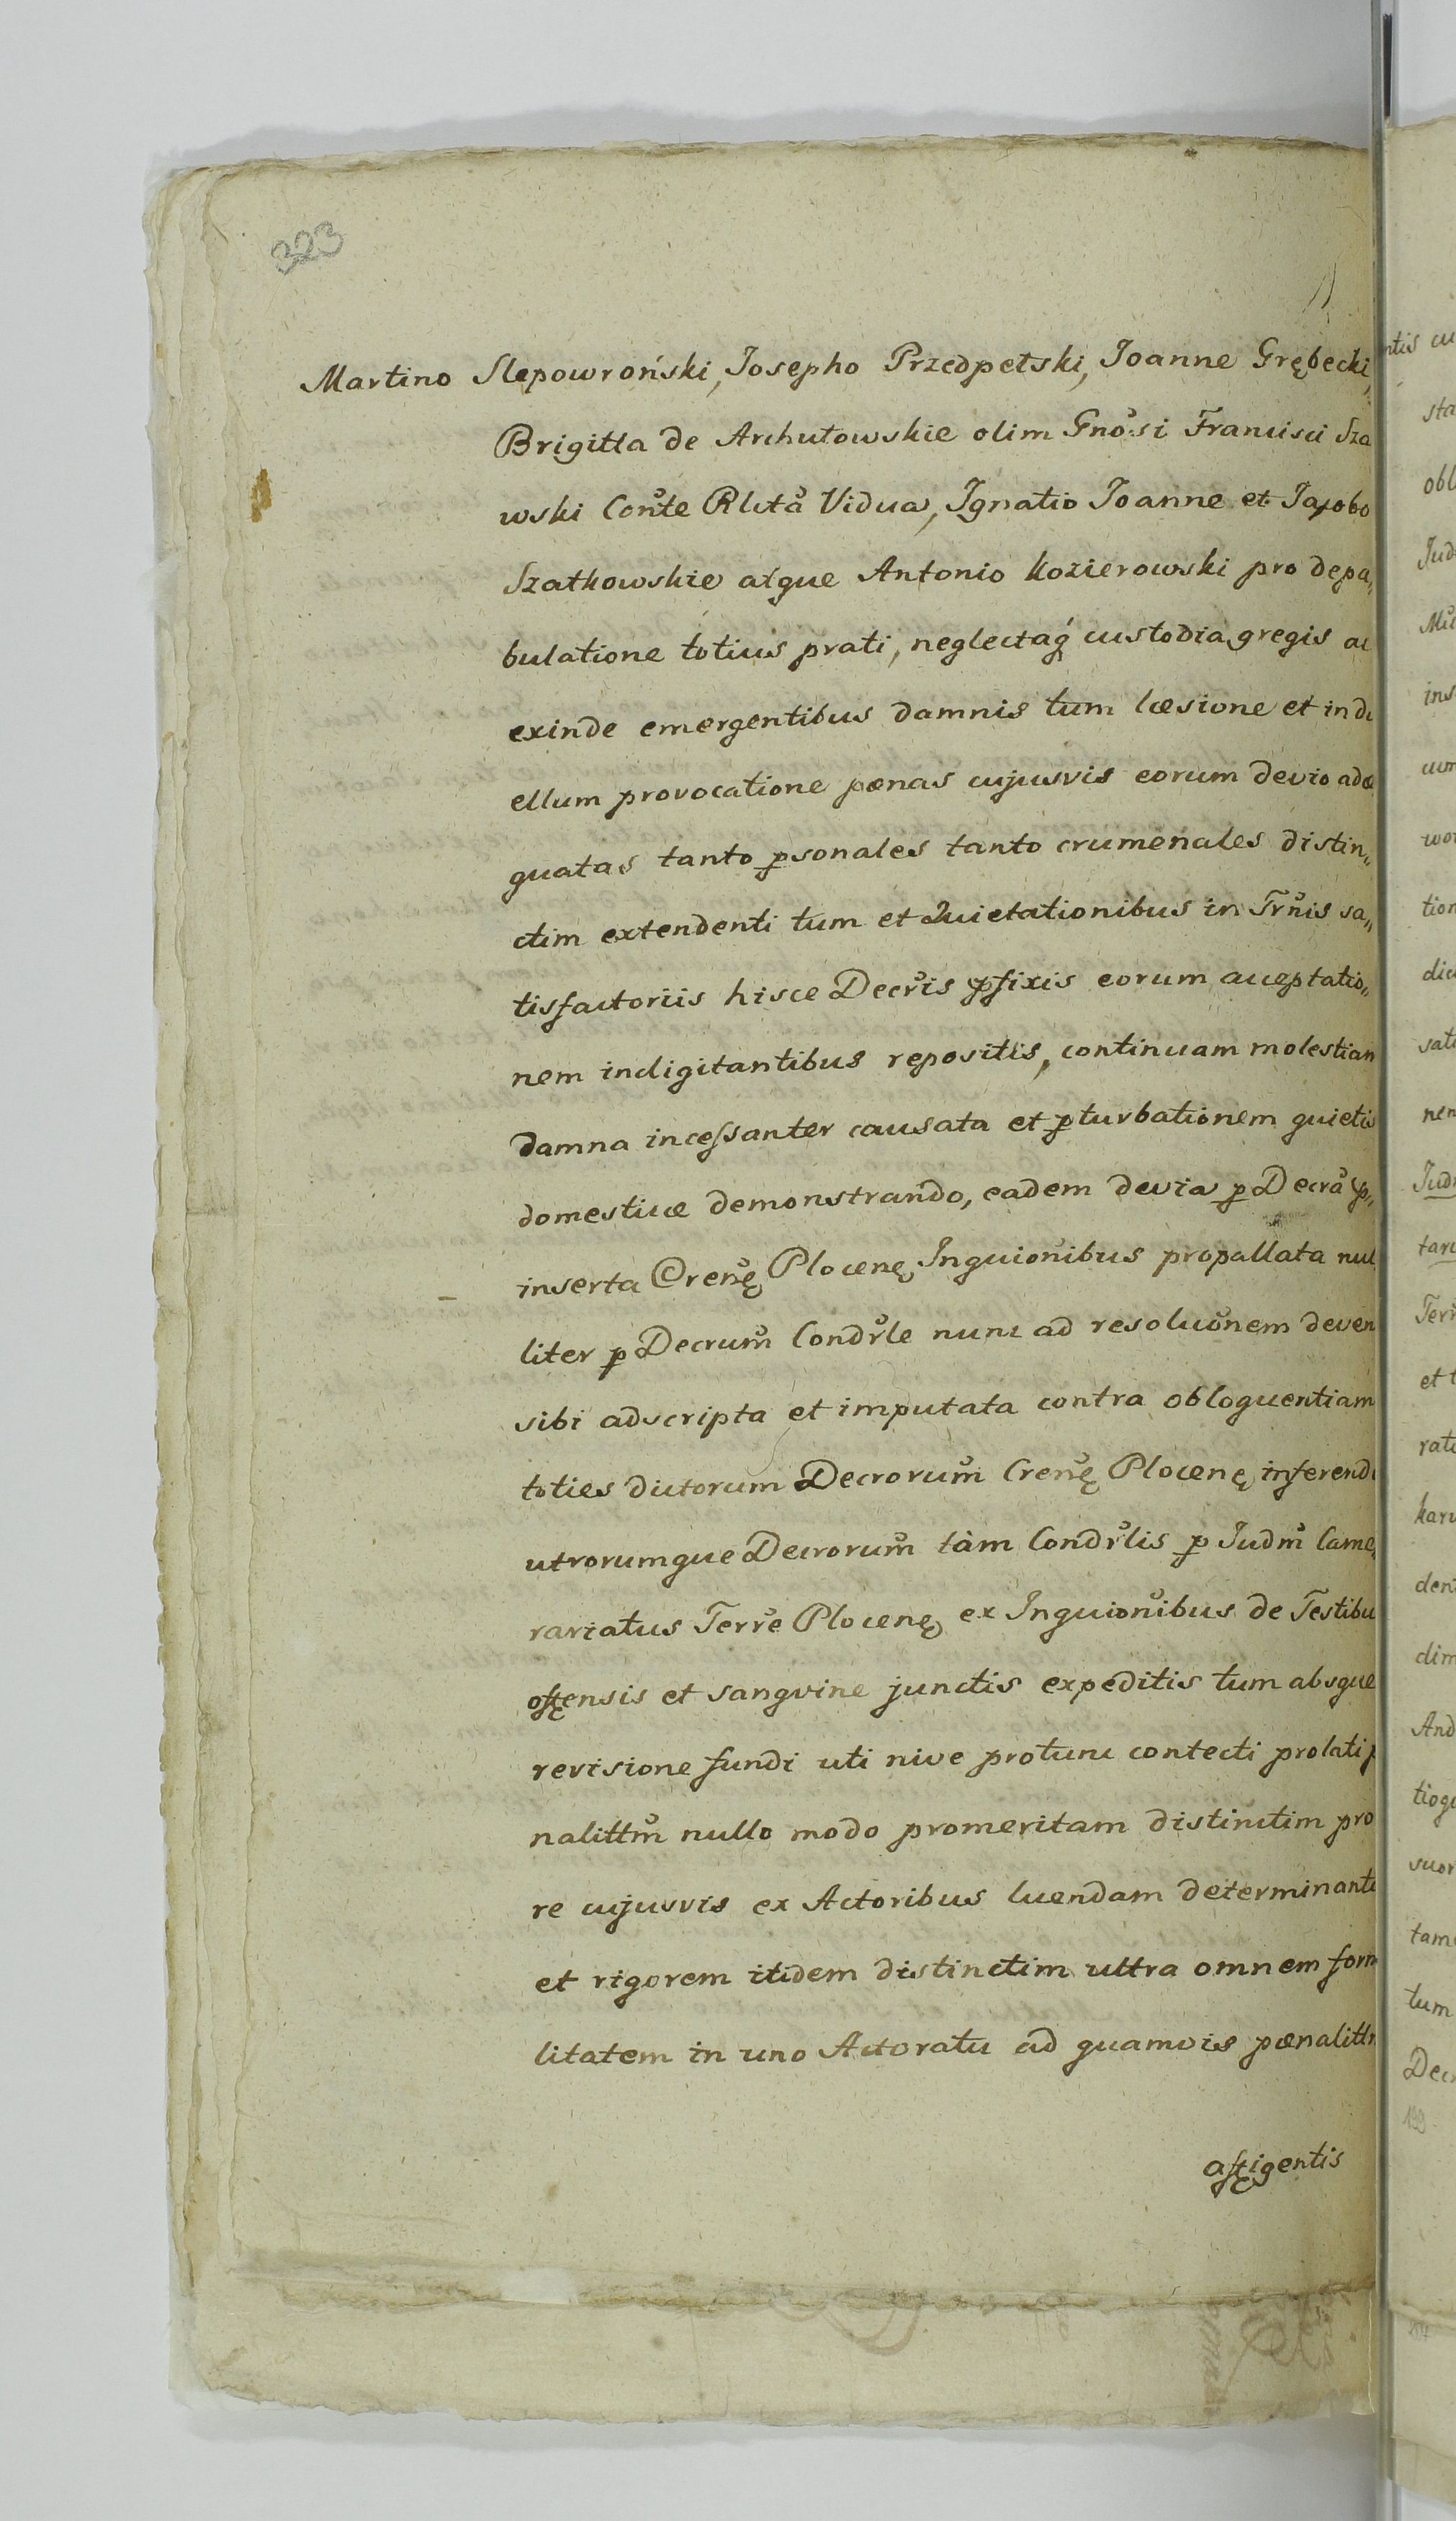 323
Martino Slepowroński, Josepho Przedpełski, Joanne Grębecki,
Brigitta de Archutowskie olim Gnosi Francisci Sza
wski Conte Rlcta Vidua, Ignatio Joanne et Jacobo
Szatkowskie atque Antonio Kozierowski pro depa„
bulatione totius prati, neglectaq́ custodia gregis ac
exinde emergentibus damnis tum læsione et indu
ellum provocatione pœnas cujusvis eorum devio adæ
quatas tanto psonales tanto crumenales distin„
ctim extendenti tum et Quietationibus in Trnis sa„
tisfactoriis hisce Decris pfixis eorum acceptatio„
nem indigitantibus repositis, continuam molestiam
damna incessanter causata et pturbationem quietis
domesticæ demonstrando, eadem devia p Decra p„
inserta Crenę Plocenę Inquionibus propallata nul
liter p Decrum Condrle nunc ad resoluonem deven
sibi adscripta et imputata contra obloquentiam
toties dictorum Decrorum Crenę Plocenę inferendi
utrorumque Decrorum tàm Condrlis p Judm Came„
rariatus Terre Plocenę ex Inquionibus de Testibu
offensis et sangvine junctis expeditis tum absque
revisione fundi uti nive protunc contecti prolati p
nalittm nullo modo promeritam distinctim pro
re cujusvis ex Actoribus luendam determinanti
et rigorem itidem distinctim ultra omnem form
litatem in uno Actoratu ad quamvis pœnalittm
affigentis
ntis cu
sta
obl
Jud
ins
cum
wor
tion
dic
sati
nem
Judr
taru
Terr
et t
rate
karu
den
dim
And
tioqu
suor
tam
tum
Decr
199